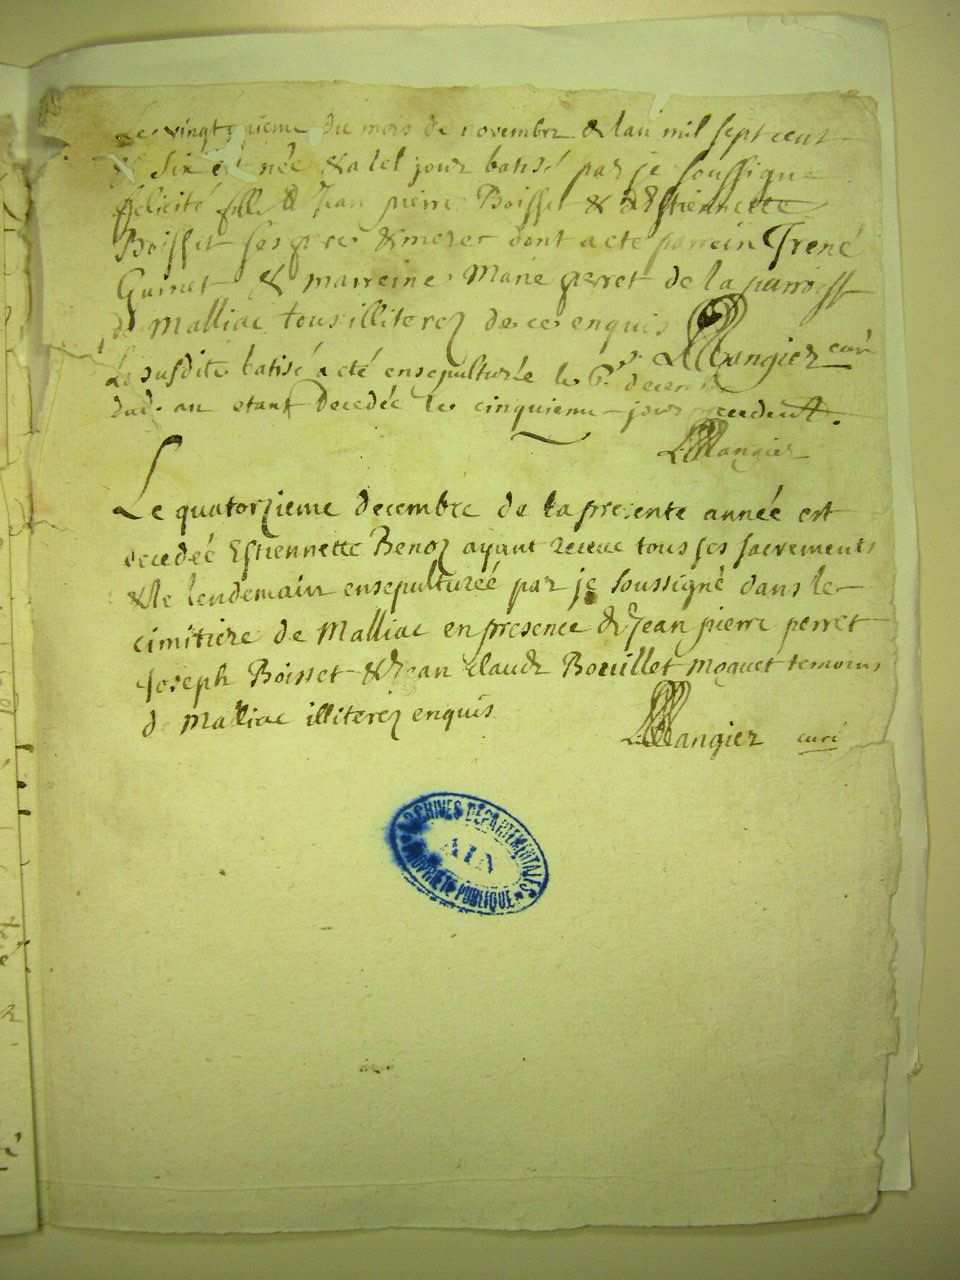 Le vingt du mois de novembre & lan mil sept cent
& six est née & a tel jour batisé par je soussigne
felicité fille d Jean pierre Boisset & d Estiennette
Boisset ses pere & merer dont acte parrein Irené
Guinet & marreine Marie perret de la parroisse
de Malliac tous illiterez de ce enquis LMangier curé
La susdite batisé a été ensepulturée le 6e decembre
dud. an etant decedée le cinquieme jour precedent.
LMangier
Le quatorzieme decembre de la presente année est
decedée Estiennette Benoz ayant receue tous ses sacrements
& le lendemain ensepulturéé par je soussigné dans le
cimitiere de Malliac en presence de Jean pierre perret
Joseph Boisset & Jean claude Bouillet moquet temoins
de Malliac illiterez enquis
LMangier curé
ARCHIVES DÉPARTEMENTALES
AIN
PROPRIÉTÉ PUBLIQUE